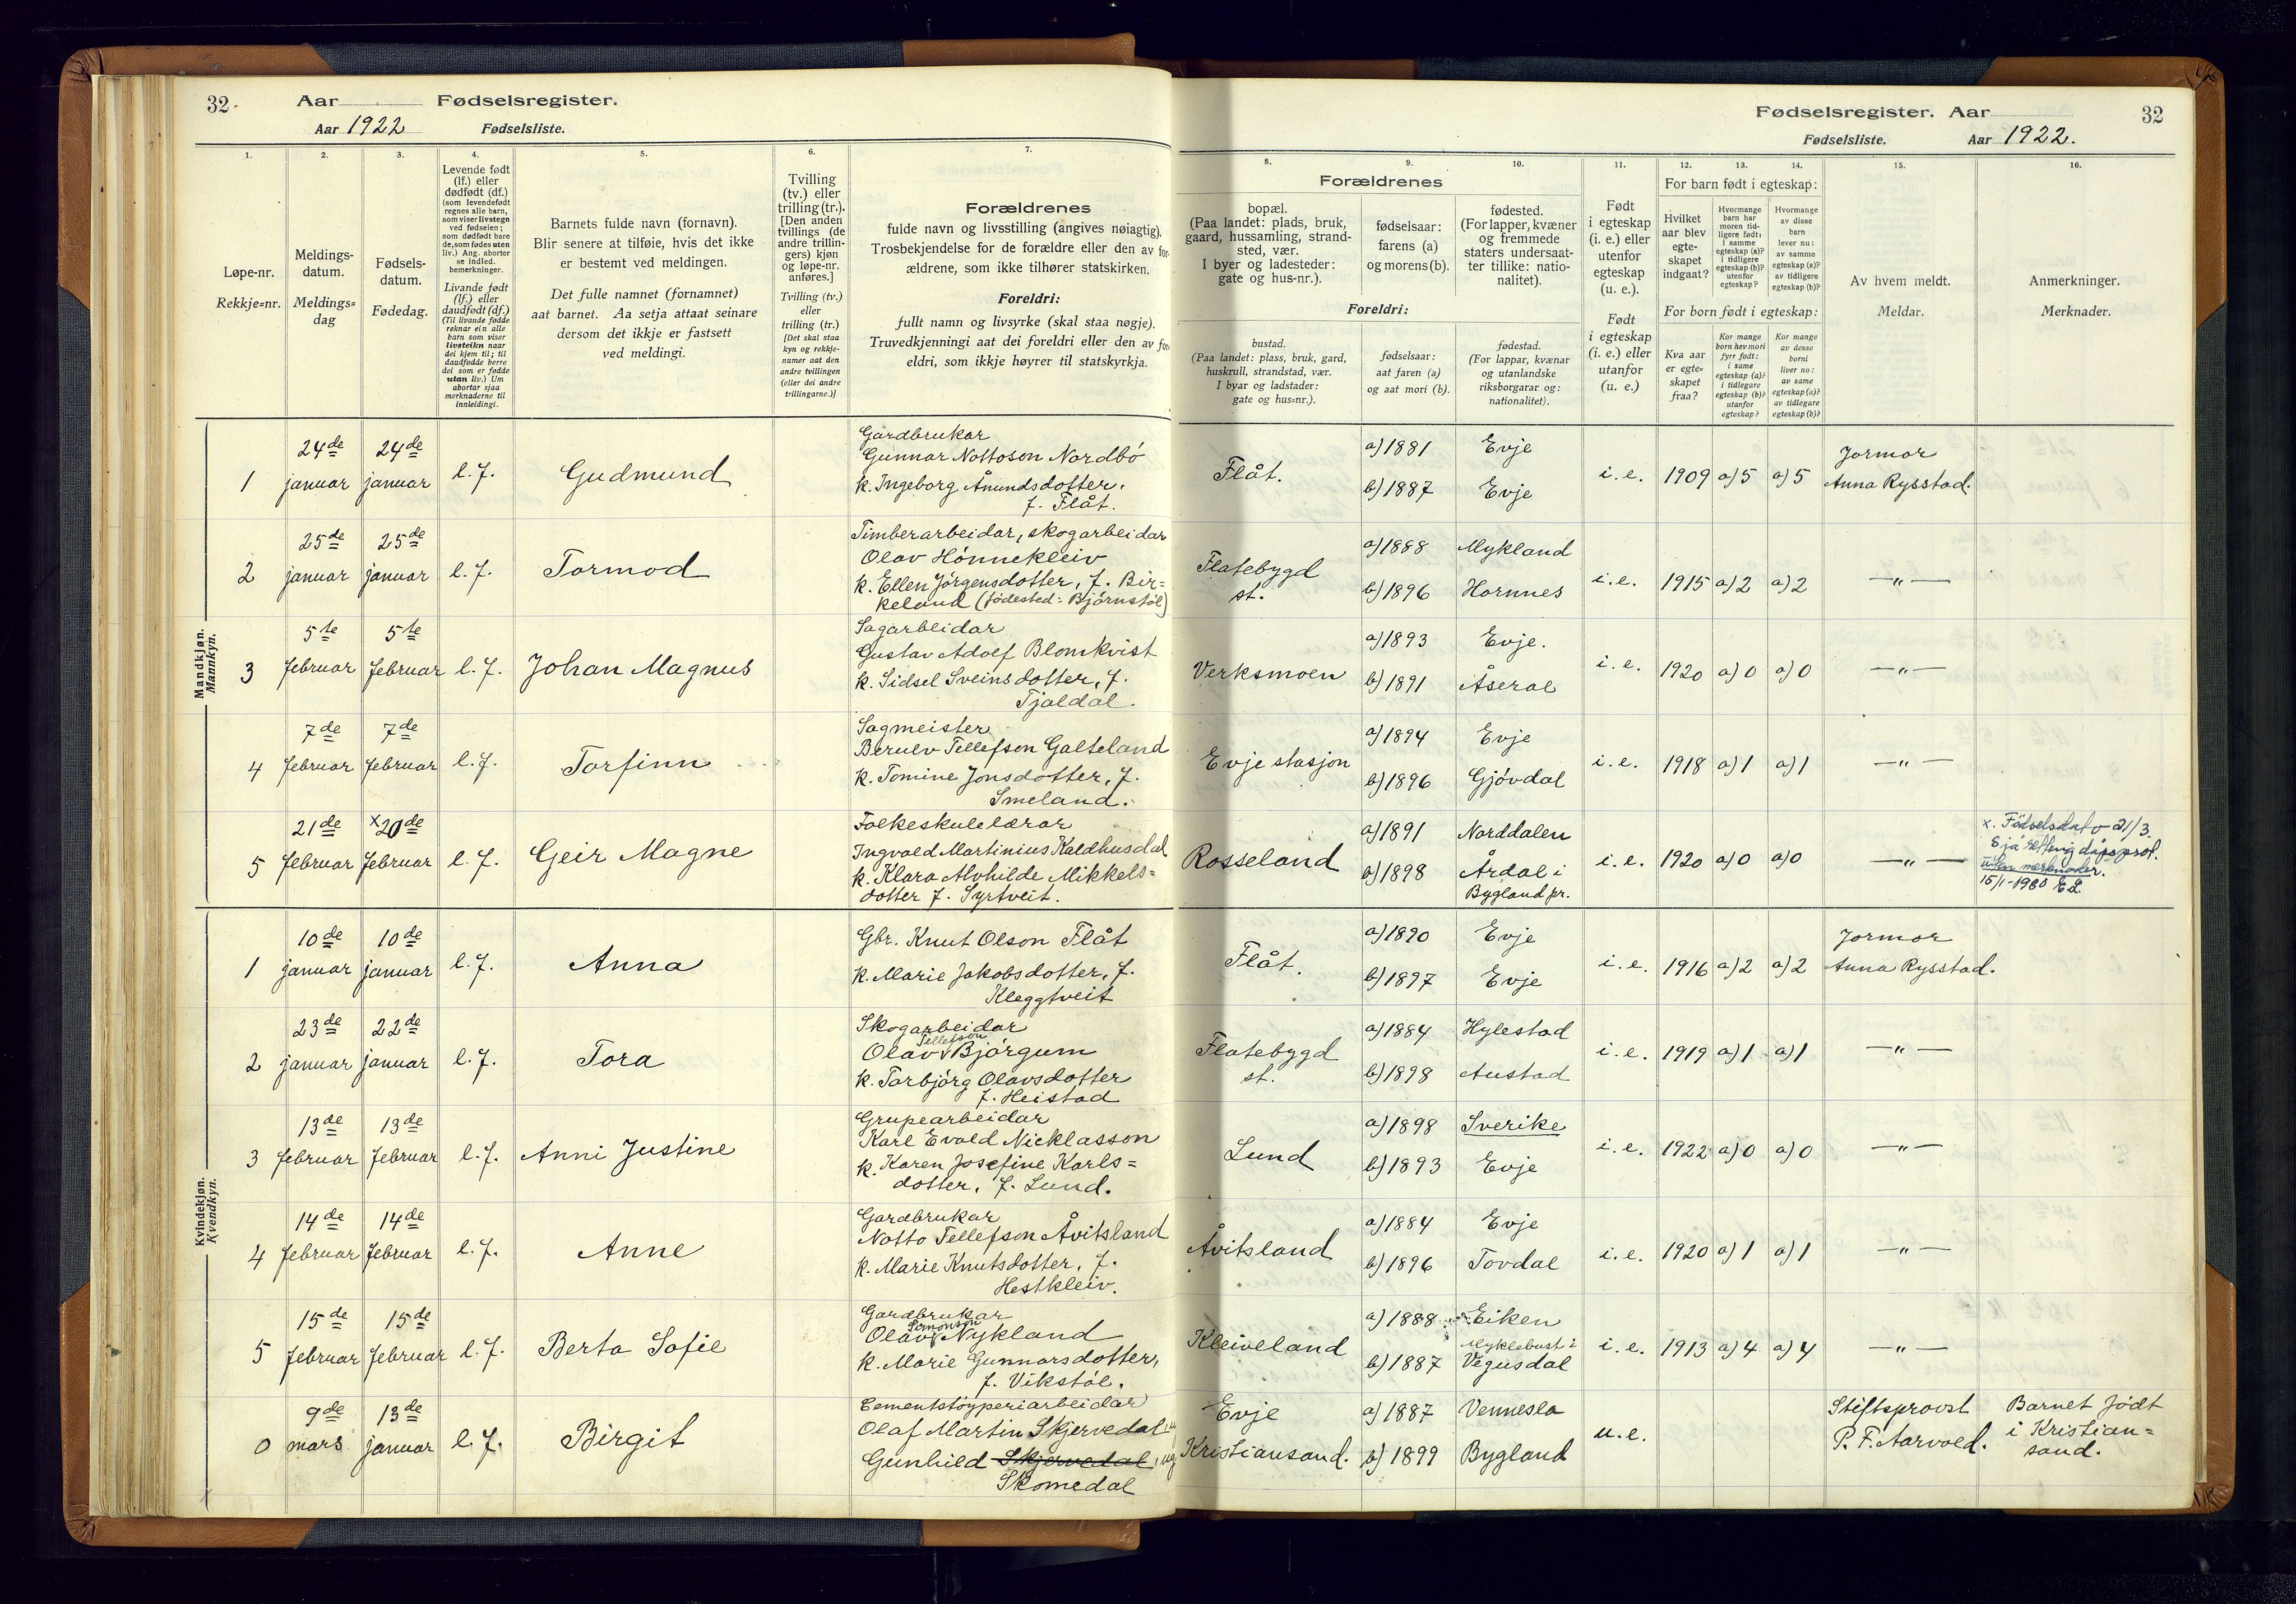 32. Aar Fødselsregister.
Aar 1922 Fødselsliste.
1. 2. 3. 4. 5. 6. 7.
Løpe-nr.
Rekkje=nr.
Meldings-
datum.
Meldings=
dag
Fødsels-
datum.
Fødedag.
Levende født
(lf.) eller
dødfødt (df.)
(som levendefødt
regnes alle barn,
som viser livstegn
ved fødselen;
som dødfødt bare
de, som fødes uten
liv.) Ang. aborter
se indled.
bemerkninger.
Livande født
(lf.) eller
daudfødt (df.)
(Til livande fødde
reknar ein alle
barn som viser
livsteikn naar
dei kjem til; til
daudfødde berre
dei som er fødde
utan liv.) Um
abortar sjaa
merknaderne til
innleidingi.
Barnets fulde navn (fornavn).
Blir senere at tilføie, hvis det ikke
er bestemt ved meldingen.
Det fulle namnet (fornamnet)
aat barnet. Aa setja attaat seinare
dersom det ikkje er fastsett
ved meldingi.
Tvilling
(tv.) eller
trilling (tr.).
[Den anden
tvillings (de
andre trillin-
gers) kjøn
og løpe-nr.
anføres.]
Tvilling (tv.)
eller
trilling (tr.)
[Det skal staa
kyn og rekkje-
numer aat den
andre tvillingen
(eller dei andre
trillingarne.)]
Forældrenes
fulde navn og livsstilling (angives nøiagtig).
Trosbekjendelse for de forældre eller den av for-
ældrene, som ikke tilhører statskirken.
Foreldri:
fullt namn og livsyrke (skal staa nøgje).
Truvedkjenningi aat dei foreldri eller den av for-
eldri, som ikkje høyrer til statskyrkja.
Mandkjøn.
Mannkyn.
1 24de januar 24de januar l.f. Gudmund
Gardbrukar
Gunnar Nottoson Nordbö
k. Ingeborg Ånundsdotter.
f. Flåt.
2 25de januar 25de januar l.f. Tormod
Timberarbeidar, skogarbeidar
Olav Hönnekleiv
k. Ellen Jörgensdotter, f. Bir=
keland (födested: Björnstöl)
3 5te februar 5te februar l.f. Johan Magnus
Sagarbeidar
Gustav Adolf Blomkvist
k. Sidsel Sveinsdotter, f.
Tjaldal.
4 7de februar 7de februar l.f. Torfinn
Sagmeister
Berulv Tellefson Galteland
k. Tomine Jonsdotter, f.
Smeland.
5 21de februar x20de februar l.f. Geir Magne
Folkeskulelærar
Ingvald Martinius Kaldhusdal
k. Klara Alvhilde Mikkels=
dotter f. Syrtveit.
Kvindekjøn.
Kvendkyn.
1 10de januar 10de januar l.f. Anna
Gbr. Knut Olson Flåt
k. Marie Jakobsdotter, f.
Kleggtveit
2 23de januar 22de januar l.f. Tora
Skogarbeidar
Tellefson
Olav Björgum
k. Torbjörg Olavsdotter
f. Heistad
3 13de februar 13de februar l.f. Anni Justine
Grupearbeidar
Karl Evald Nicklasson
k. Karen Josefine Karls=
dotter, f. Lund.
4 14de februar 14de februar l.f. Anne
Gardbrukar
Notto Tellefson Åvitsland
k. Marie Knutsdotter, f.
Hestkleiv.
5 15de februar 15de februar l.f. Berta Sofie
Gardbrukar
Simonson
Olav Nykland
k. Marie Gunnarsdotter,
f. Vikstöl.
0 9de mars 13de januar l.f. Birgit
Cementstöyperiarbeidar
Olaf Martin Skjervedal
Gunhild Skjervedal, ug
Skomedal
Fødselsregister. Aar 32
Fødselsliste. Aar 1922.
8. 9. 10. 11. 12. 13. 14. 15. 16.
Forældrenes
bopæl.
(Paa landet: plads, bruk,
gaard, hussamling, strand-
sted, vær.
I byer og ladesteder:
gate og hus-nr.).
fødselsaar:
farens (a)
og morens (b).
fødested.
(For lapper, kvæner
og fremmede
staters undersaat-
ter tillike: natio-
nalitet).
Foreldri:
bustad.
(Paa landet: plass, bruk, gard,
huskrull, strandstad, vær.
I byar og ladstader:
gate og hus=nr.).
fødselsaar:
aat faren (a)
og aat mori (b).
fødestad.
(For lappar, kvænar
og utanlandske
riksborgarar og:
nationalitet).
Født
i egteskap
(i. e.) eller
utenfor
egteskap
(u. e.).
Født
i egteskap
(i. e.) eller
utanfor
(u. e.)
For barn født i egteskap:
Hvilket
aar blev
egte-
skapet
indgaat?
Hvormange
barn har
moren tid-
ligere født:
i samme
egteskap (a)?
i tidligere
egteskap (b)?
utenfor
egteskap?
Hvormange
av disse
barn
lever nu:
av samme
egteskap (a)?
av tidligere
egteskap (b)?
For born født i egteskap:
Kva aar
er egte-
skapet
fraa?
Kor mange
born hev mori
fyrr født:
i same
egteskap (a)?
i tidlegare
egteskap (b)?
utanfor
egteskap?
Kor mange
av desse
borni
liver no:
av same
egteskap (a)?
av tidlegare
egteskap (b)?
Av hvem meldt.
Meldar.
Anmerkninger.
Merknader.
Flåt. a) 1881 Evje
b) 1887 Evje
i.e. 1909 a) 5 a) 5 Jormor
Anna Rysstad.
Flatebygd
st. a) 1888 Mykland
b) 1896 Hornnes
i.e. 1915 a) 2 a) 2 —"—
Verksmoen a) 1893 Evje.
b) 1891 Åseral
i.e. 1920 a) 0 a) 0 —"—
Evje stasjon a) 1894 Evje
b) 1896 Gjövdal
i.e. 1918 a) 1 a) 1 —"—
Rosseland a) 1891 Norddalen
b) 1898 Årdal i
Bygland pr.
i.e. 1920 a) 0 a) 0 —"—
x. Födselsdato 21/3.
dåpsprot.
uten merknader.
15/1-1980 EL.
Flåt. a) 1890 Evje
b) 1897 Evje
i.e. 1916 a) 2 a) 2 Jormor
Anna Rysstad.
Flatebygd
st. a) 1884 Hylestad
b) 1898 Austad
i.e. 1919 a) 1 a) 1 —"—
Lund a) 1898 Sverike
b) 1893 Evje
i.e. 1922 a) 0 a) 0 —"—
Åvitsland a) 1884 Evje
b) 1896 Tovdal
i.e. 1920 a) 1 a) 1 —"—
Kleiveland a) 1888 Eiken
Myklebust i
b) 1887 Vegusdal
i.e. 1913 a) 4 a) 4 —"—
Evje a) 1887 Vennesla
Kristiansand. b) 1899 Bygland
u.e.
Stiftsprovst
P. F. Aarvold.
Barnet født
i Kristian=
sand.